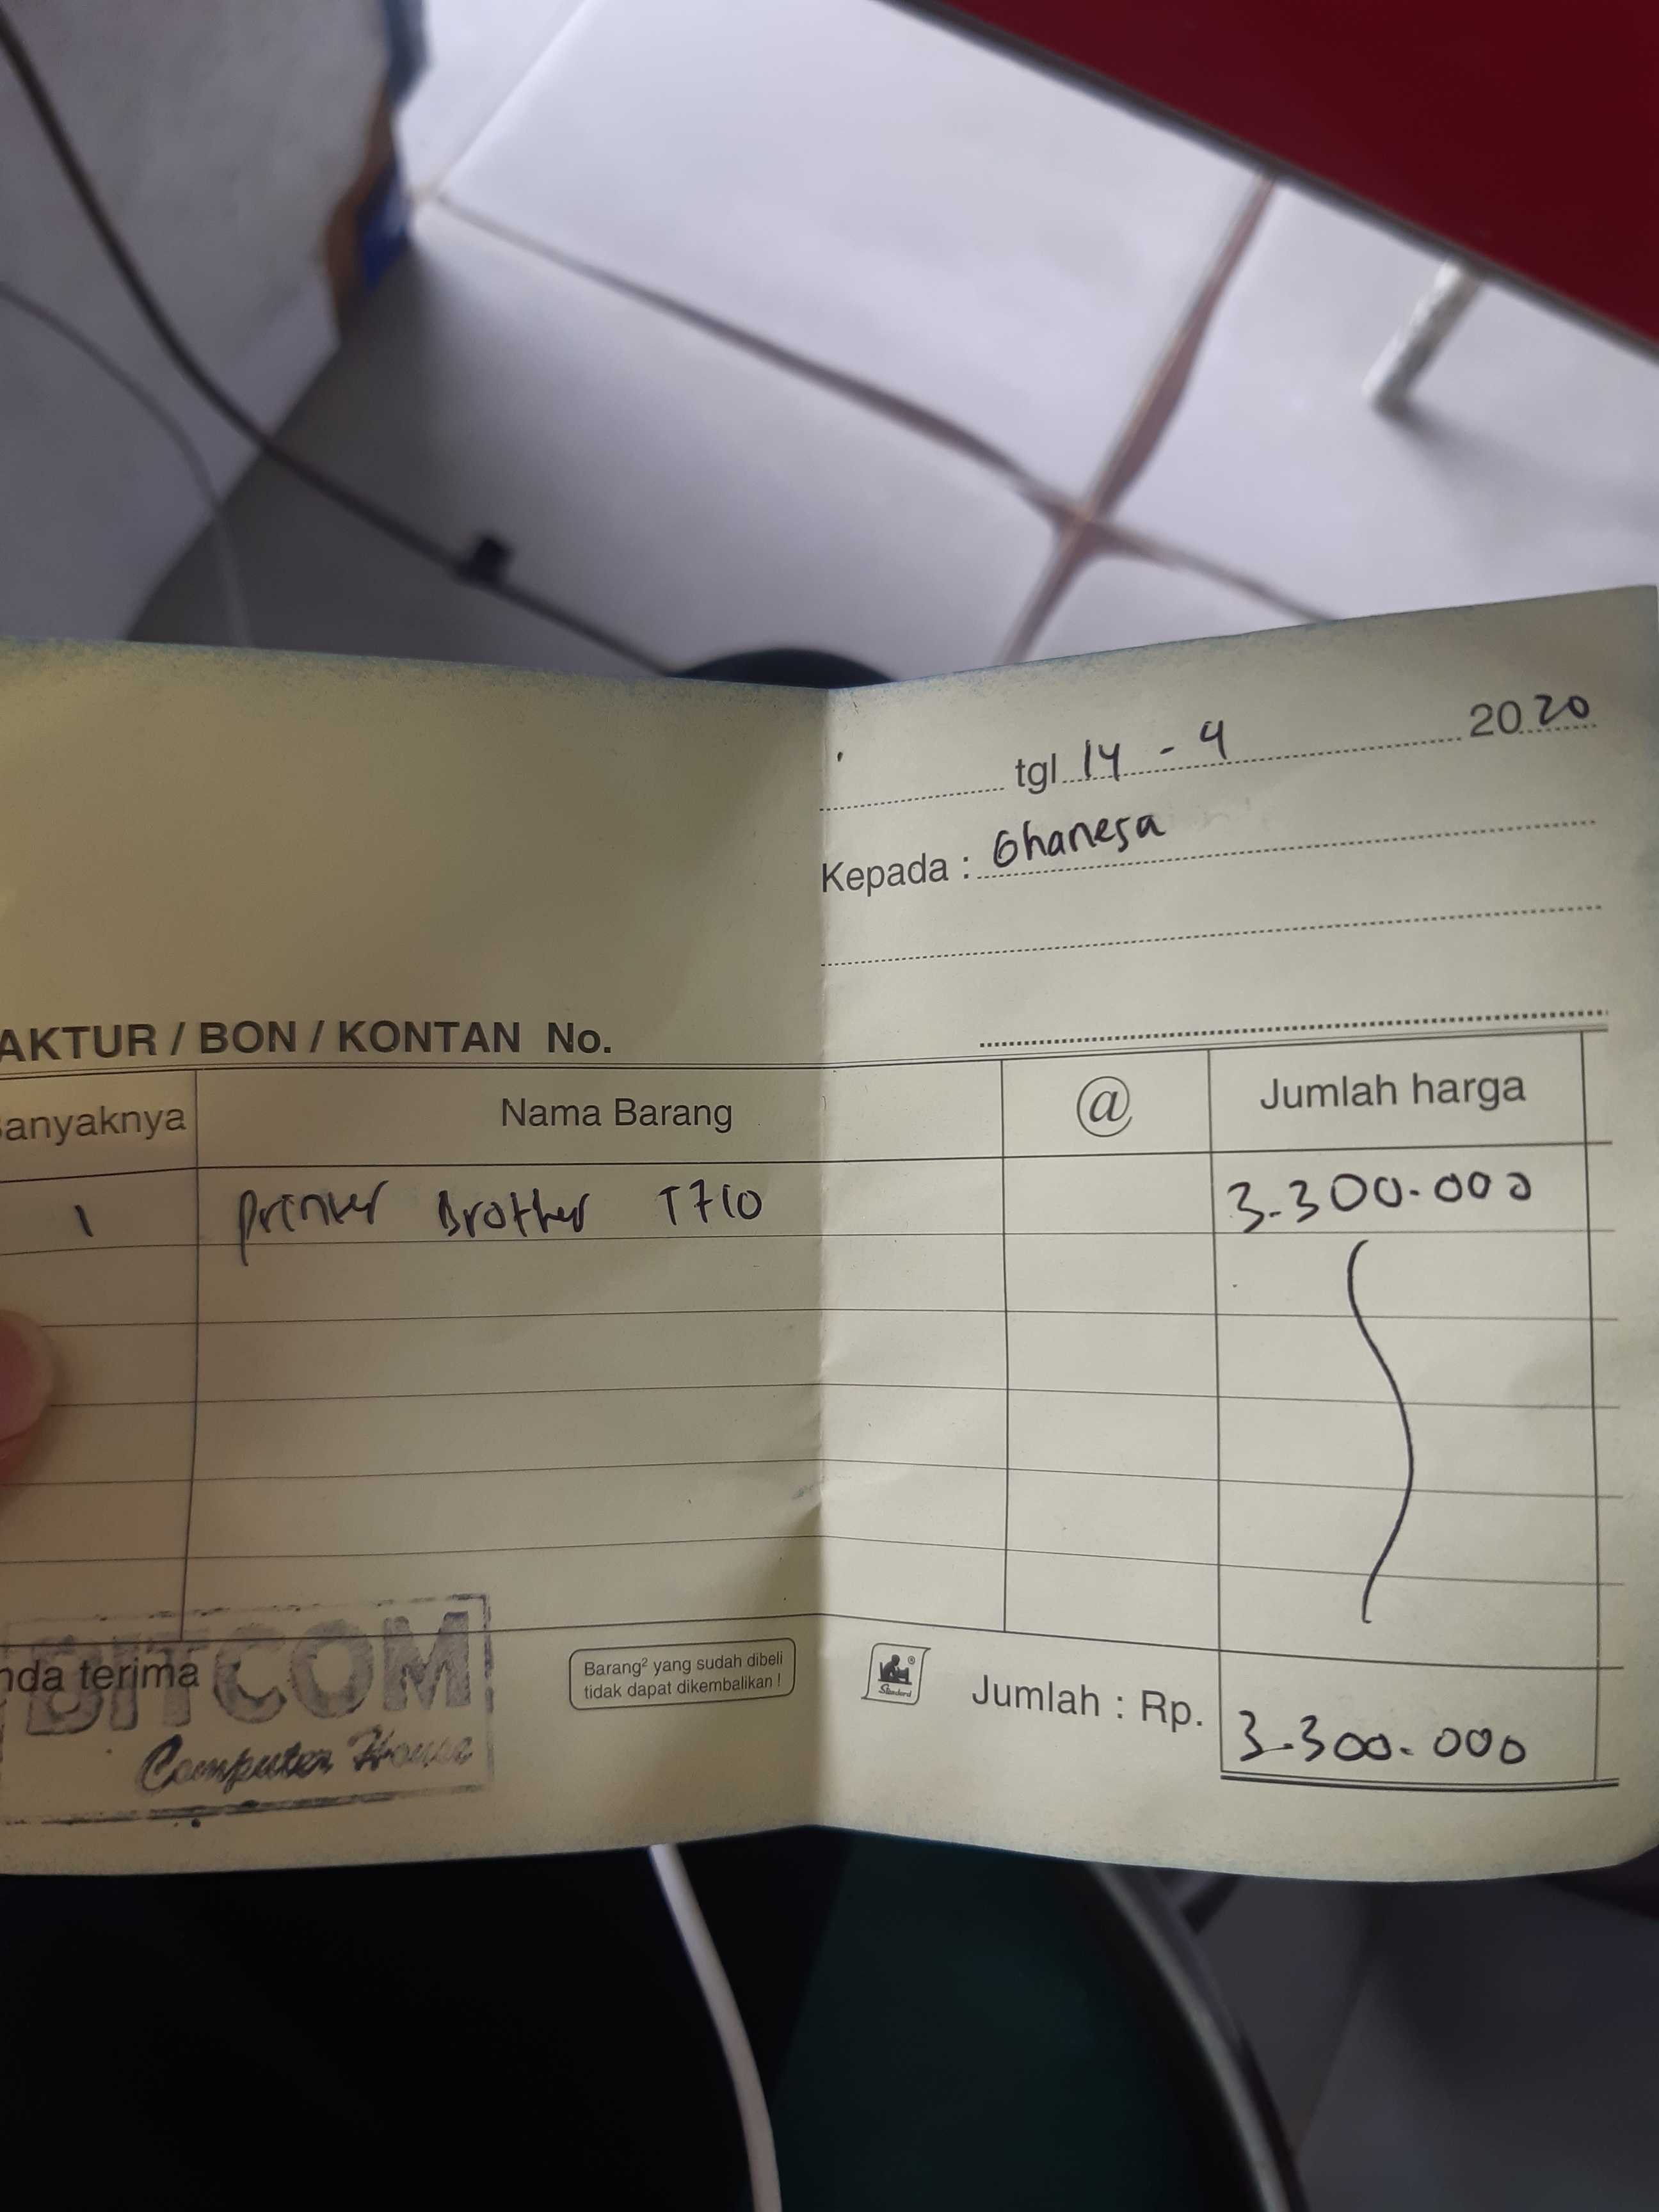 tgl 14 - 4 2020
Kepada : Ghanesa
AKTUR / BON / KONTAN No.
anyaknya Nama Barang @ Jumlah harga
1 Printer Brother T710 3.300.000
nda terima
BITCOM
Computer House
Barang² yang sudah dibeli
tidak dapat dikembalikan !
Standard
Jumlah : Rp. 3.300.000